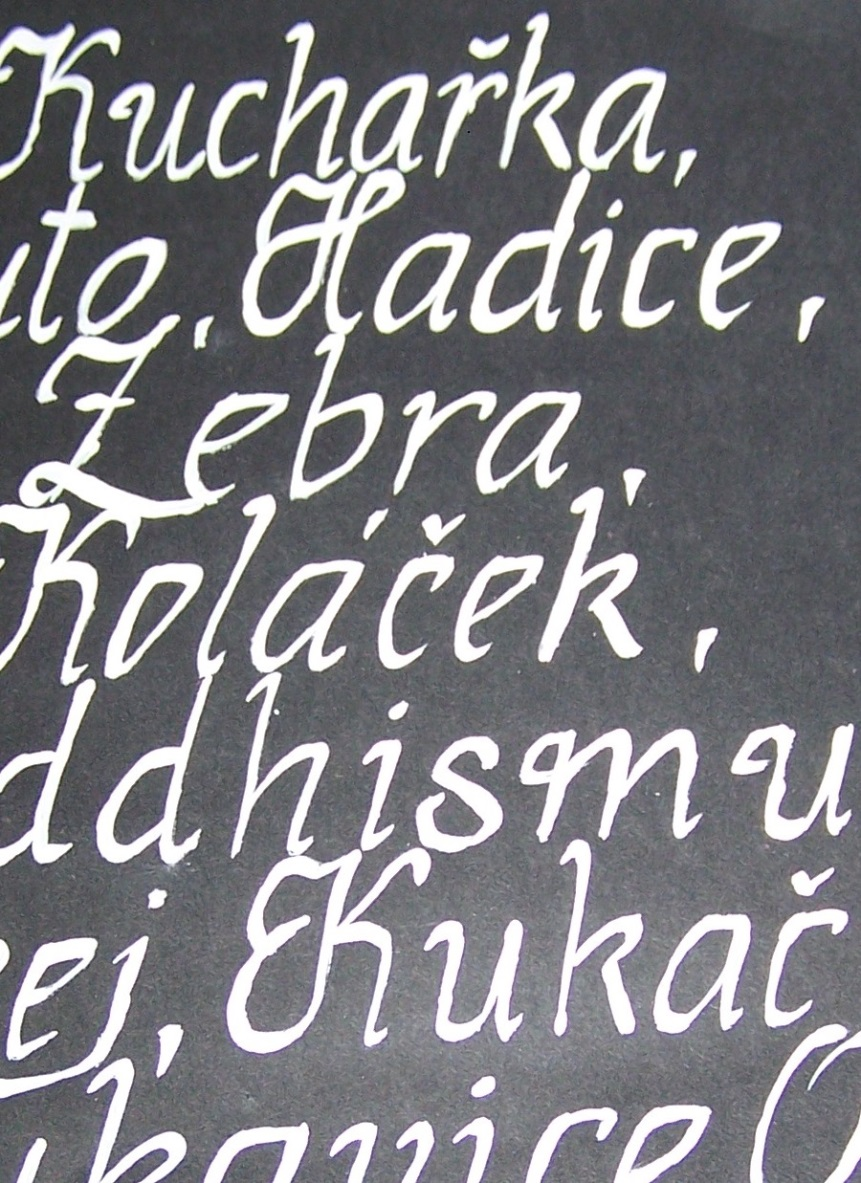 Kuchařka,
uto, Hadice,
Zebra,
Koláček,
ddhismu
ej, Kukač
ukavice